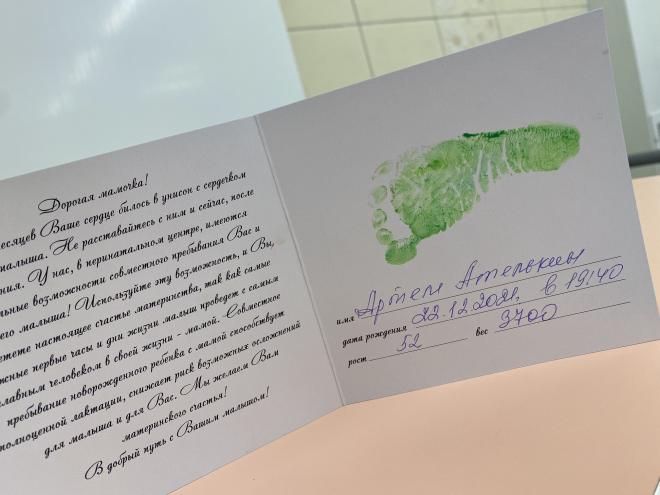 Дорогая мамочка!
есяцев Ваше сердце билось в унисон с сердечком
малыша. Не расставайтесь с ним и сейчас, после
ния. У нас, в перинатальном центре, имеются
льные возможности совместного пребывания Вас и
его малыша! Используйте эту возможность, и Вы,
етете настоящее счастье материнства, так как самые
жные первые часы и дни жизни малыш проведет с самым
лавным человеком в своей жизни - мамой. Совместное
пребывание новорожденного ребенка с мамой способствует
олноценной лактации, снижает риск возможных осложнений
для малыша и для Вас. Мы желаем Вам
материнского счастья!
В добрый путь с Вашим малышом!
имя Артем Ателькин
дата рождения 22.12.2021, в 19:40
рост 52 вес 3700